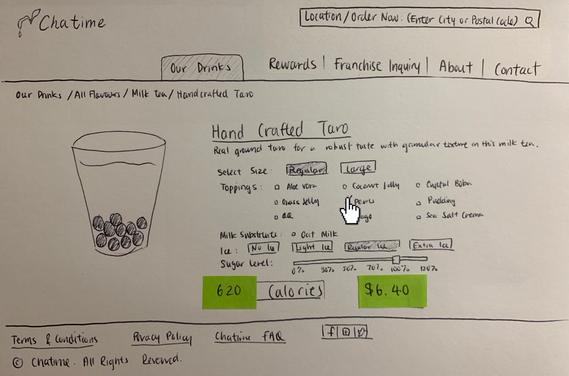 Chatime
Location/Order Now: (Enter City or Postal Code)
Our Drinks Rewards | Franchise Inquiry | About | Contact
Our Drinks / All Flavours / Milk tea / Handcrafted Taro
Hand Crafted Taro
Real ground taro for a robust taste with granular texture in this milk tea.
Select Size: Regular Large
Toppings: Aloe Vera Coconut Jelly Crystal Boba
Grass Jelly Pearls Pudding
QQ Sea Salt Crema
Milk Substitute: Oat Milk
Ice: No Ice Light Ice Regular Ice Extra Ice
Sugar Level:
0% 30% 50% 70% 100% 120%
620 Calories $6.40
Terms & Conditions Privacy Policy Chatime FAQ
© Chatime. All Rights Reserved.